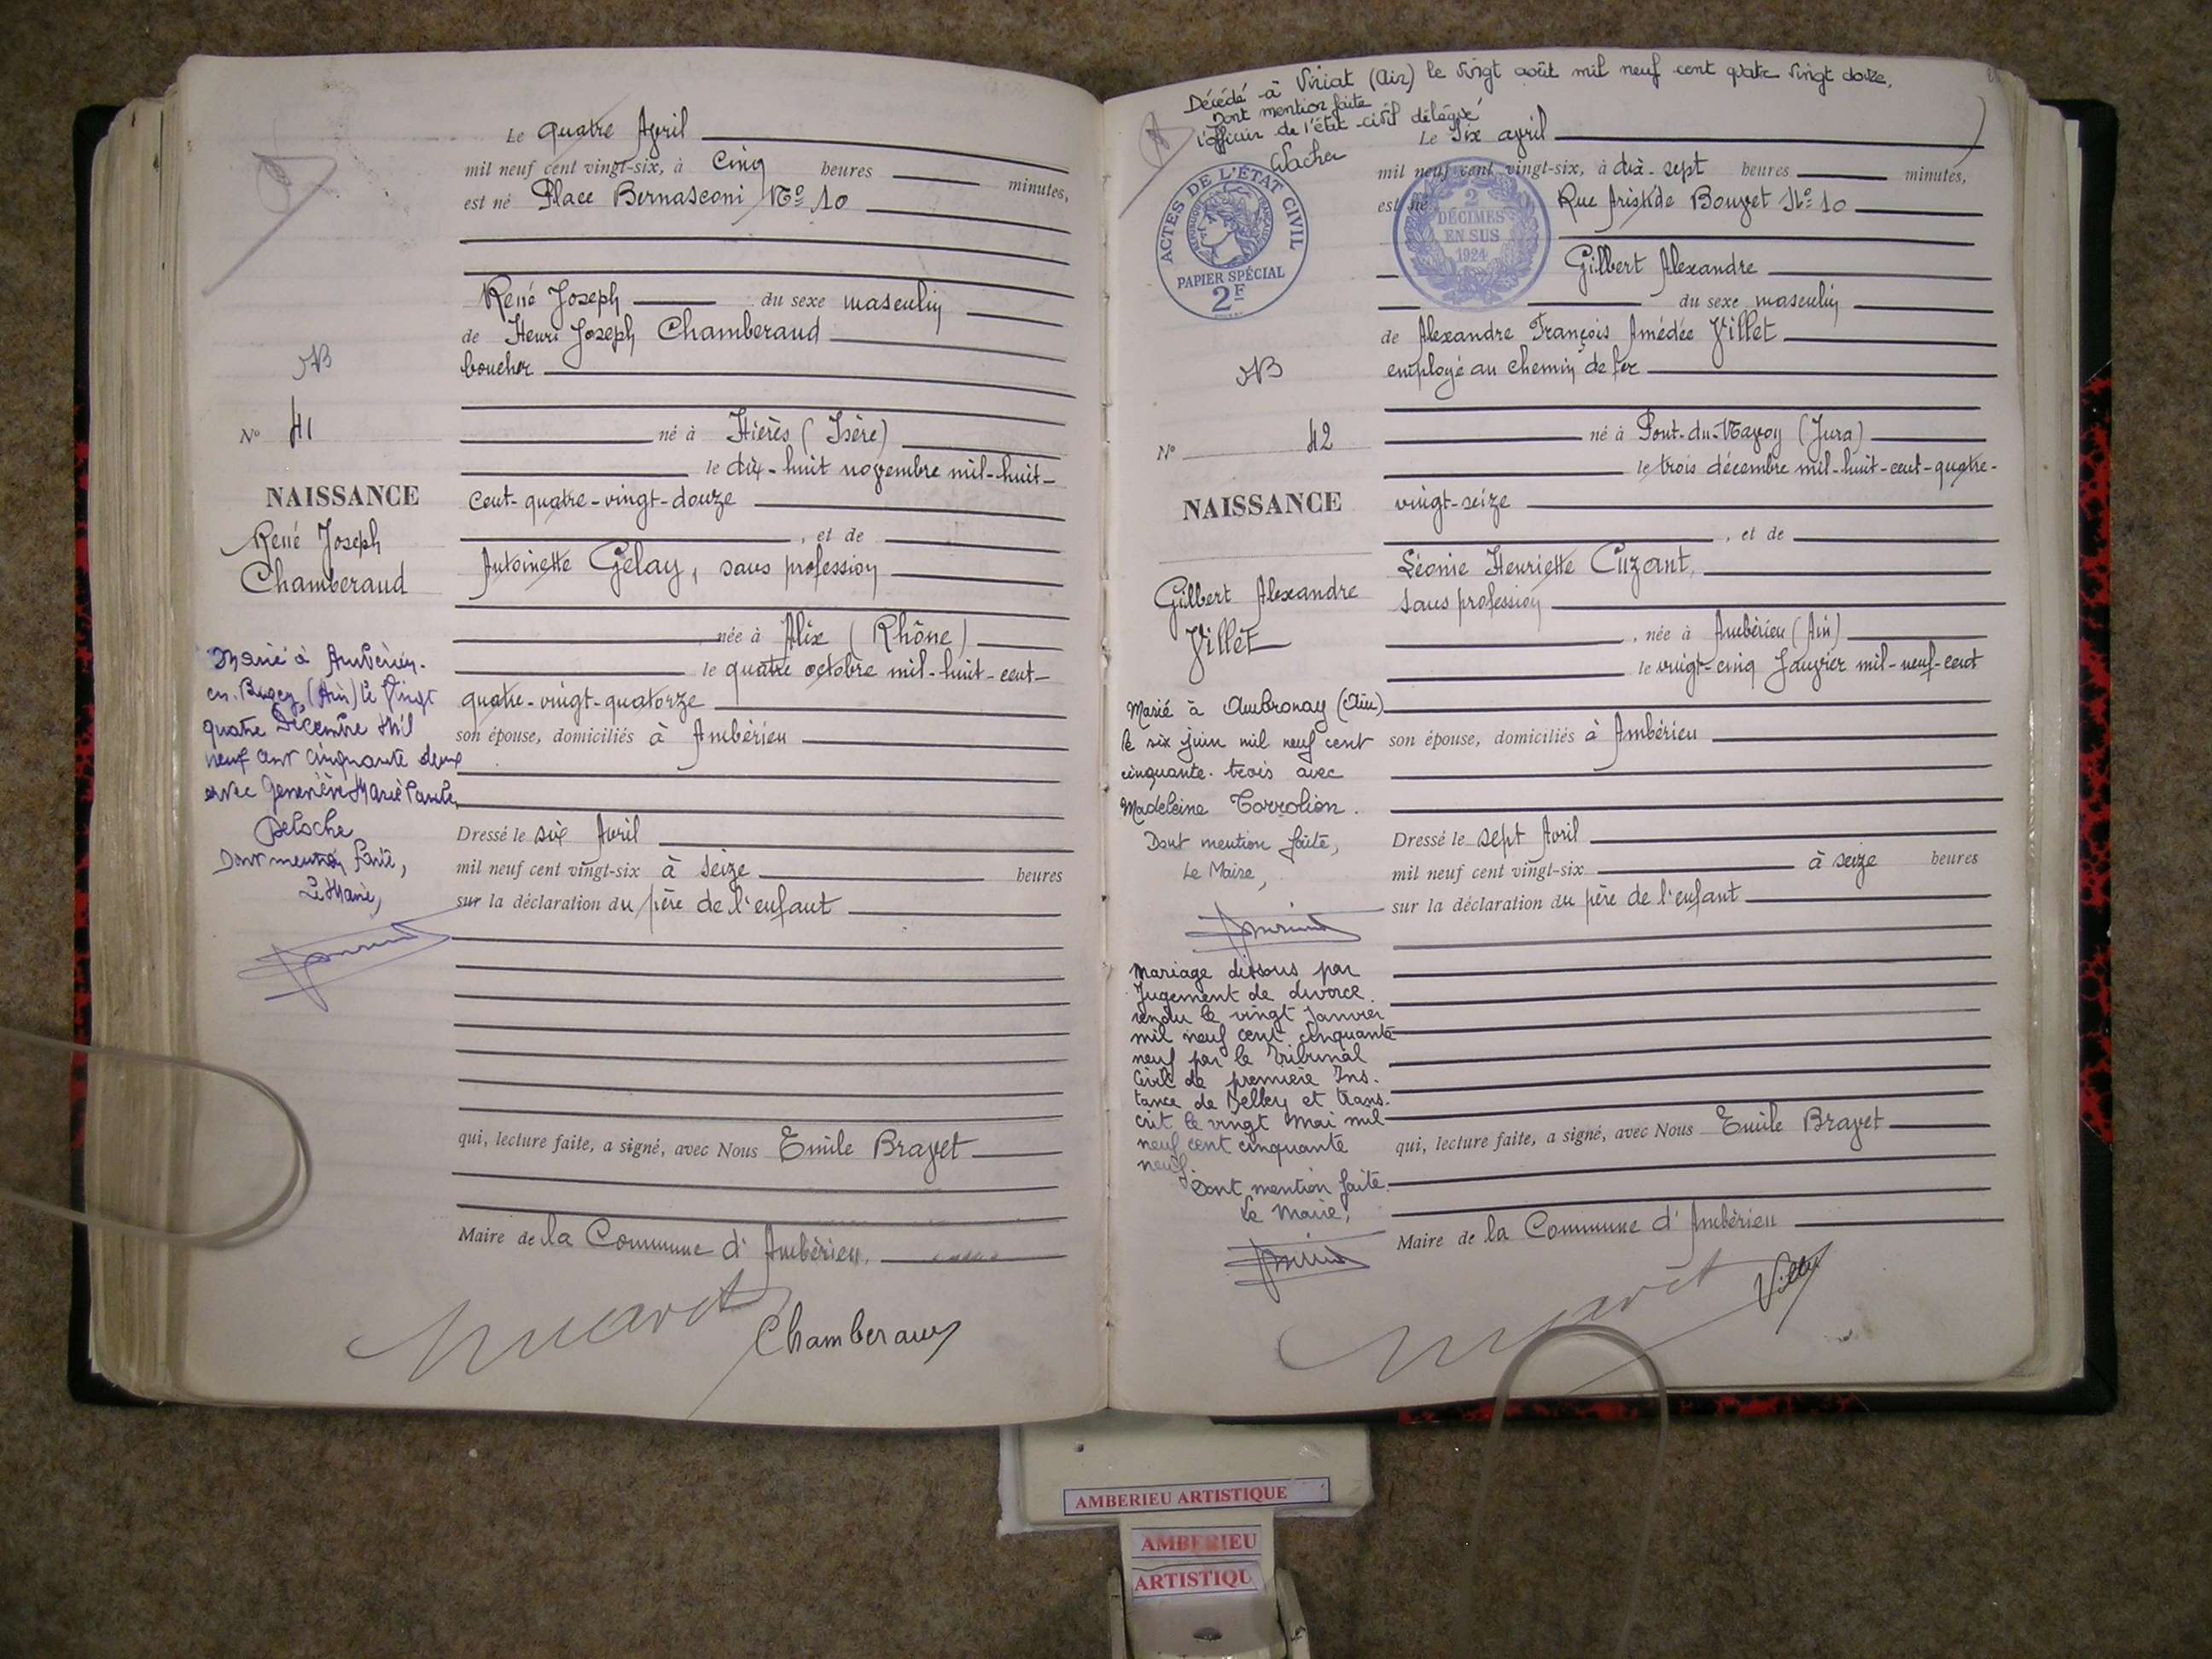 Le quatre Avril
mil neuf cent vingt-six, à Cinq heures minutes,
est né Place Bernasconi N° 10
René Joseph du sexe masculin
de Henri Joseph Chamberaud
boucher
né à Hières (Isère)
le dix-huit novembre mil-huit-
cent-quatre-vingt-douze
, et de
Antoinette Gelay, sans profession
née à Alix (Rhône)
le quatre octobre mil-huit-cent-
quatre-vingt-quatorze
son épouse, domiciliés à Ambérieu
Dressé le six Avril
mil neuf cent vingt-six à seize heures
sur la déclaration du père de l'enfant
qui, lecture faite, a signé, avec Nous Emile Bravet
Maire de la Commune d'Ambérieu.
Chamberaud
N° 41
NAISSANCE
René Joseph
Chamberaud
Marié à Ambérieu-
en-Bugey (Ain) le vingt
quatre Décembre Mil
neuf cent cinquante deux
avec Geneviève Marie Paule
Deloche
Dont mention faite,
Le Maire,
Décédé à Viriat (Ain) le vingt août mil neuf cent quatre vingt douze.
Dont mention faite
L'officier de l'état-civil délégué
ACTES DE L'ÉTAT CIVIL
RÉPUBLIQUE FRANÇAISE
PAPIER SPÉCIAL
2F
2
DÉCIMES
EN SUS
1924
Le Six avril
mil neuf cent vingt-six, à dix-sept heures minutes,
est né Rue Aristide Bouvet N° 10
Gilbert Alexandre
du sexe masculin
de Alexandre François Amédée Villet
employé au chemin de fer
né à Pont-du-Navoy (Jura)
le trois décembre mil-huit-cent-quatre-
vingt-seize
, et de
Léonie Henriette Cuzant,
sans profession
, née à Ambérieu (Ain)
le vingt-cinq Janvier mil-neuf-cent
son épouse, domiciliés à Ambérieu
Dressé le sept Avril
mil neuf cent vingt-six à seize heures
sur la déclaration du père de l'enfant
qui, lecture faite, a signé, avec Nous Emile Bravet
Maire de la Commune d'Ambérieu
Villet
N° 42
NAISSANCE
Gilbert Alexandre
Villet
Marié à Ambronay (Ain)
le six juin mil neuf cent
cinquante-trois avec
Madeleine
Dont mention faite,
Le Maire,
Mariage dissous par
Jugement de divorce
rendu le vingt Janvier
mil neuf cent cinquante
neuf par le Tribunal
Civil de première Ins-
tance de Belley et trans-
crit le vingt Mai mil
neuf cent cinquante
neuf.
Dont mention faite.
Le Maire,
AMBERIEU ARTISTIQUE
AMBERIEU
ARTISTIQU